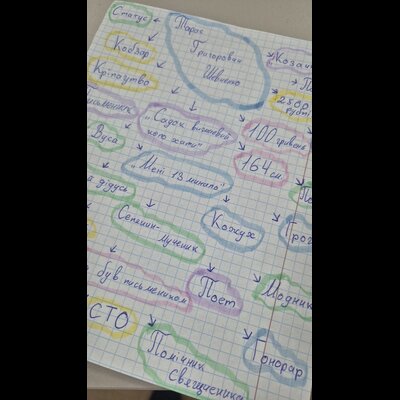 Статус
Тарас
Григорович
Шевченко
Козач
Кобзар
Кріпацтво
250р
Письменник
„Садок вишневий
коло хати"
100 гривень
Вуса
164 см.
„Мені 13 минало"
а дідусь
Селянин-
мученик
Кожух
був письменником
Поет
Модник
СТО
Помічник
Священика
Гонорар